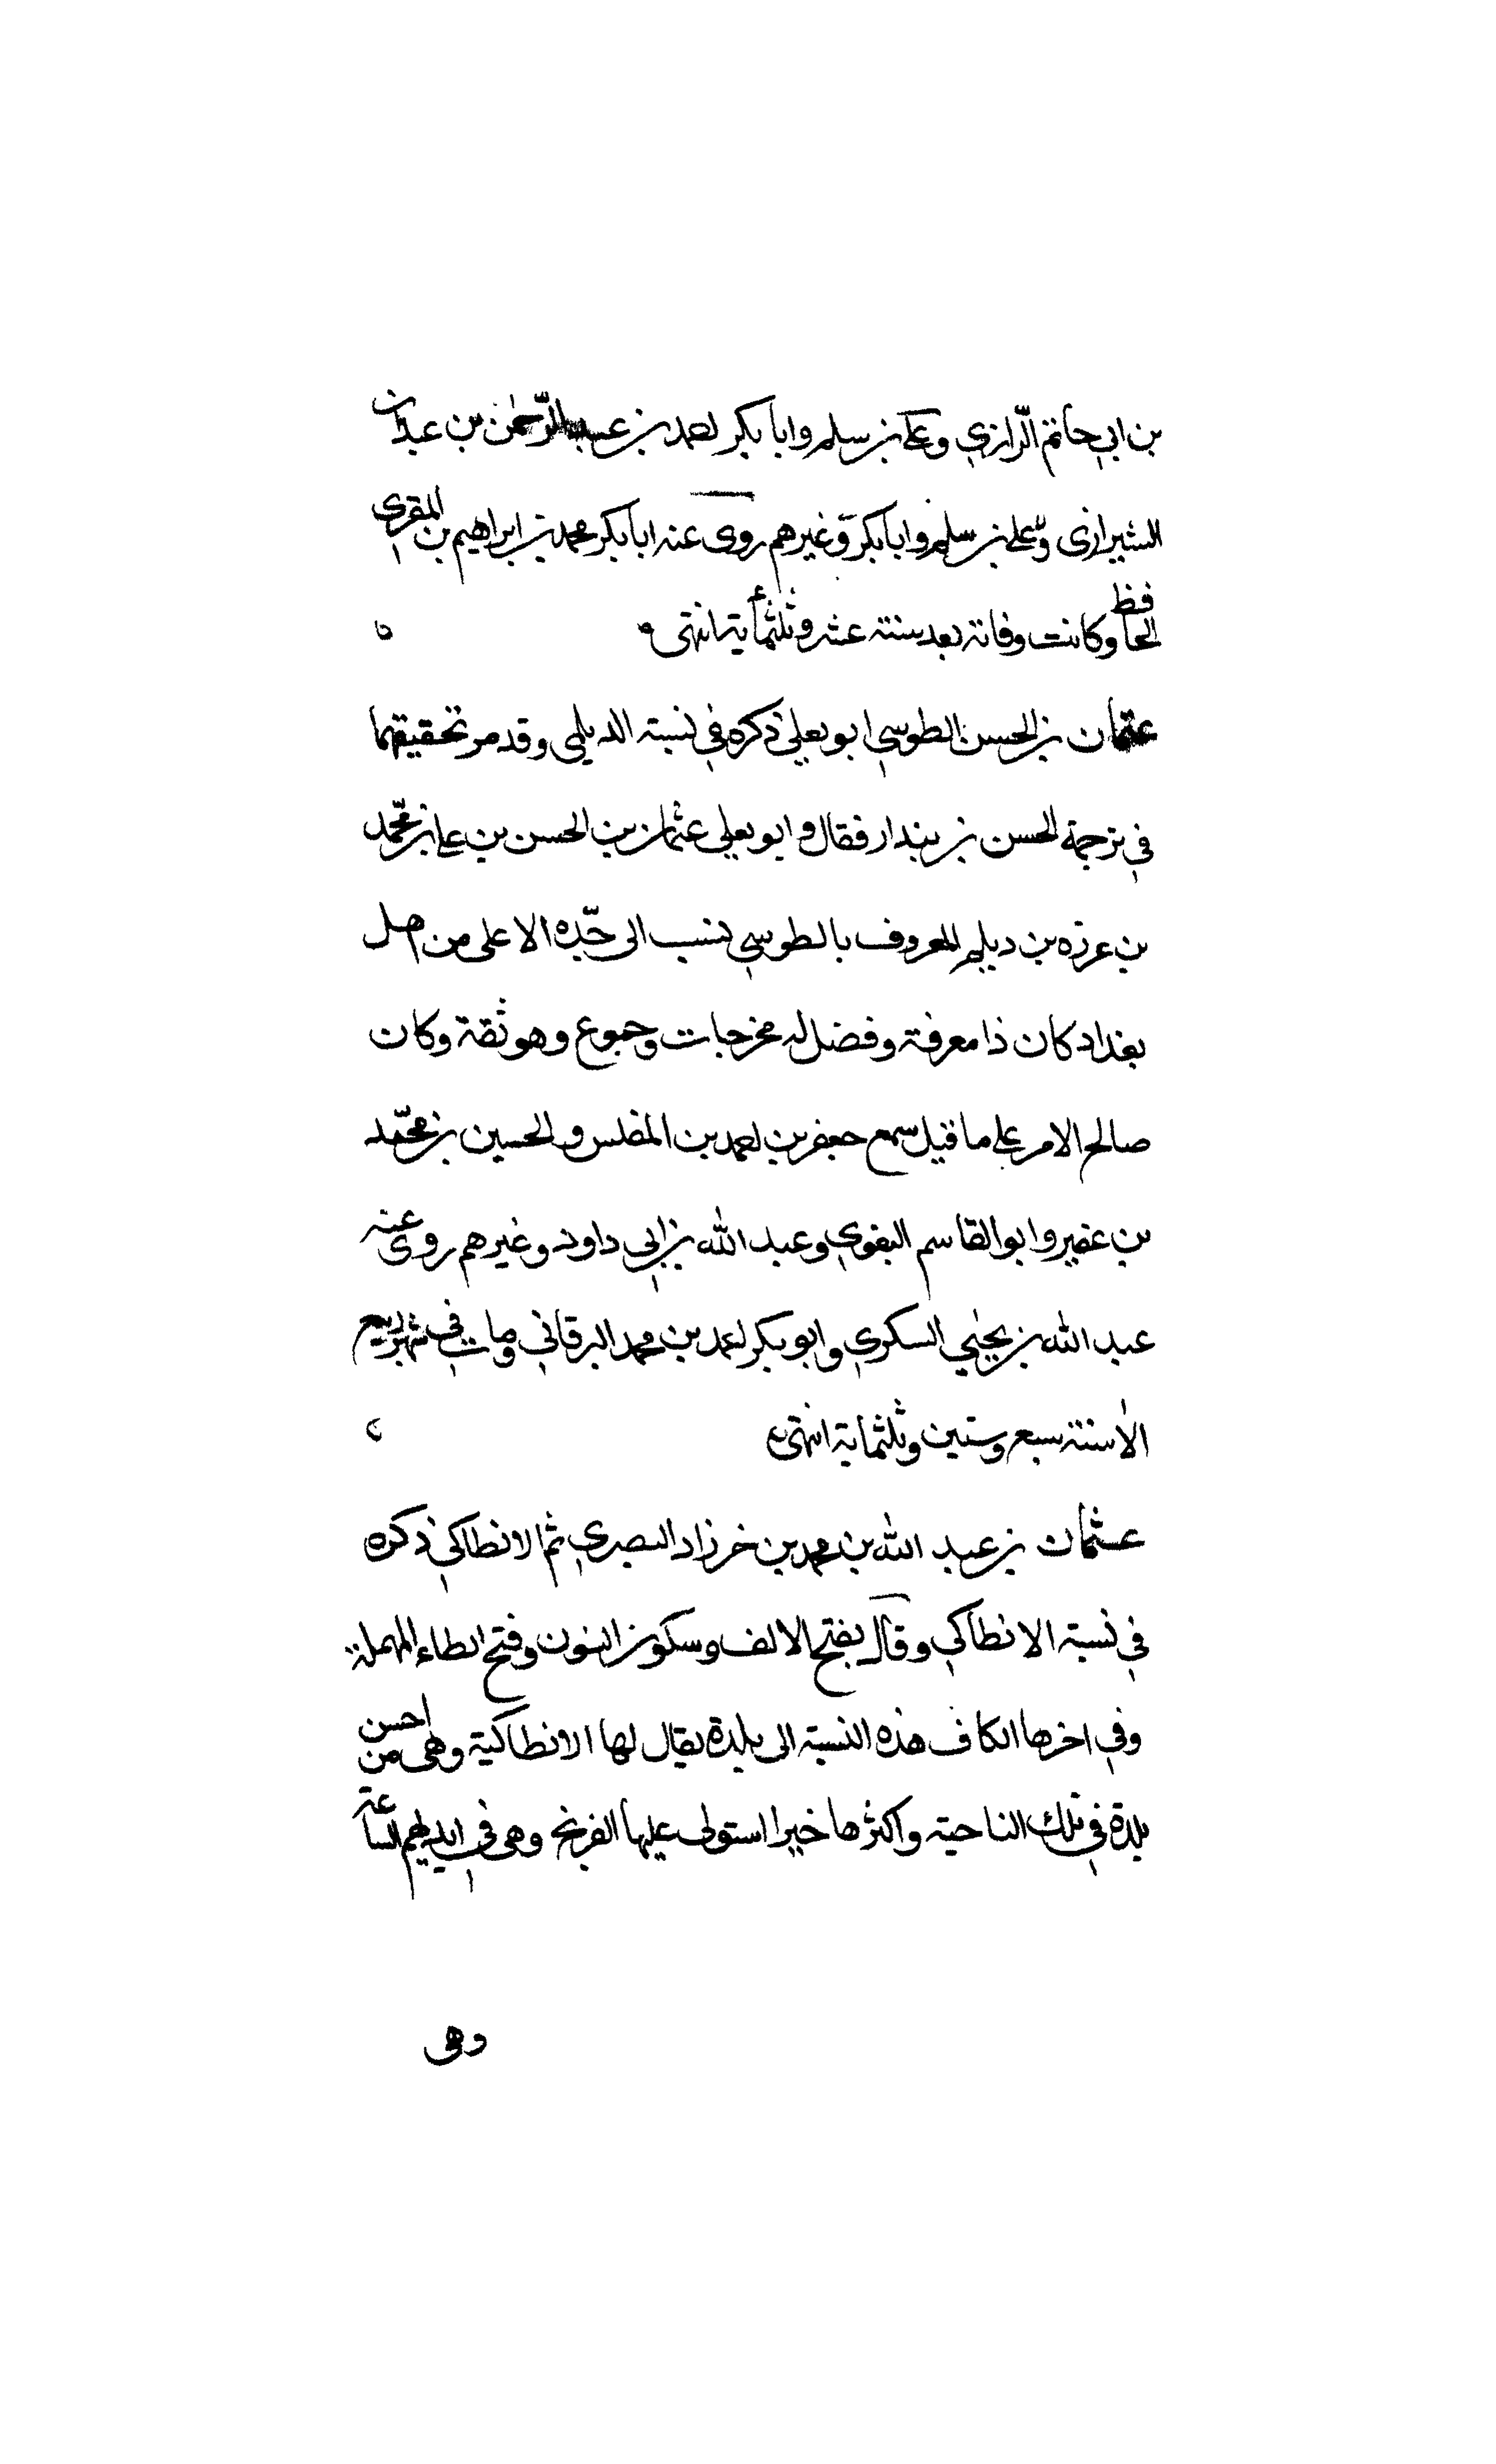 بن ابي حاتم الرّازي وعلي بن سلم وابا بكر احمد بن عبد الرّحمن بن عبدان
الشيرازى وعلي بن سلم وابا بكر وغيرهم روى عنه ابا بكر محمد بن ابراهيم بن المقرى
الحافظ وكانت وفاته بعد سنة عشر وثلثمأية انتهى
عثمان بن الحسن الطوسي ابو يعلي ذكره في نسبة الديلمى وقد مر تحقيقهما
في ترجمة الحسن بن بندار فقال وابو يعلي عثمان بن الحسن بن علي بن محمّد
بن عرزه بن ديلم المعروف بالطوسي نسب الى جّده الاعلى من اهل
بغداد كان ذا معرفة وفضل له مخرجات وجموع وهو ثقة وكان
صالح الامر علي ما قيل سمع جعفر بن احمد بن المغلس والحسين بن محمّد
بن عفير وابو القاسم البغوي وعبد الله بن ابي داود وغيرهم روى عنه
عبد الله بن يحيي السكري وابو بكر احمد بن محمد البرقاني ومات في شهر ربيع
الا سنة سبع وستين وثلثماية انتهى
عثمان بن عبد الله بن محمد بن خرزاد البصري ثم الانطاكي ذكره
في نسبة الانطاكي وقال بفتح الالف وسكون النون وفتح الطاء المهملة
وفي اخرها الكاف هذه النسبة الى بلدة يقال لها الانطاكية وهى من احسن
بلدة في تلك الناحية واكثرها خيرا استولى عليها الفرنج وهى في ايديهم الساعة
وهى